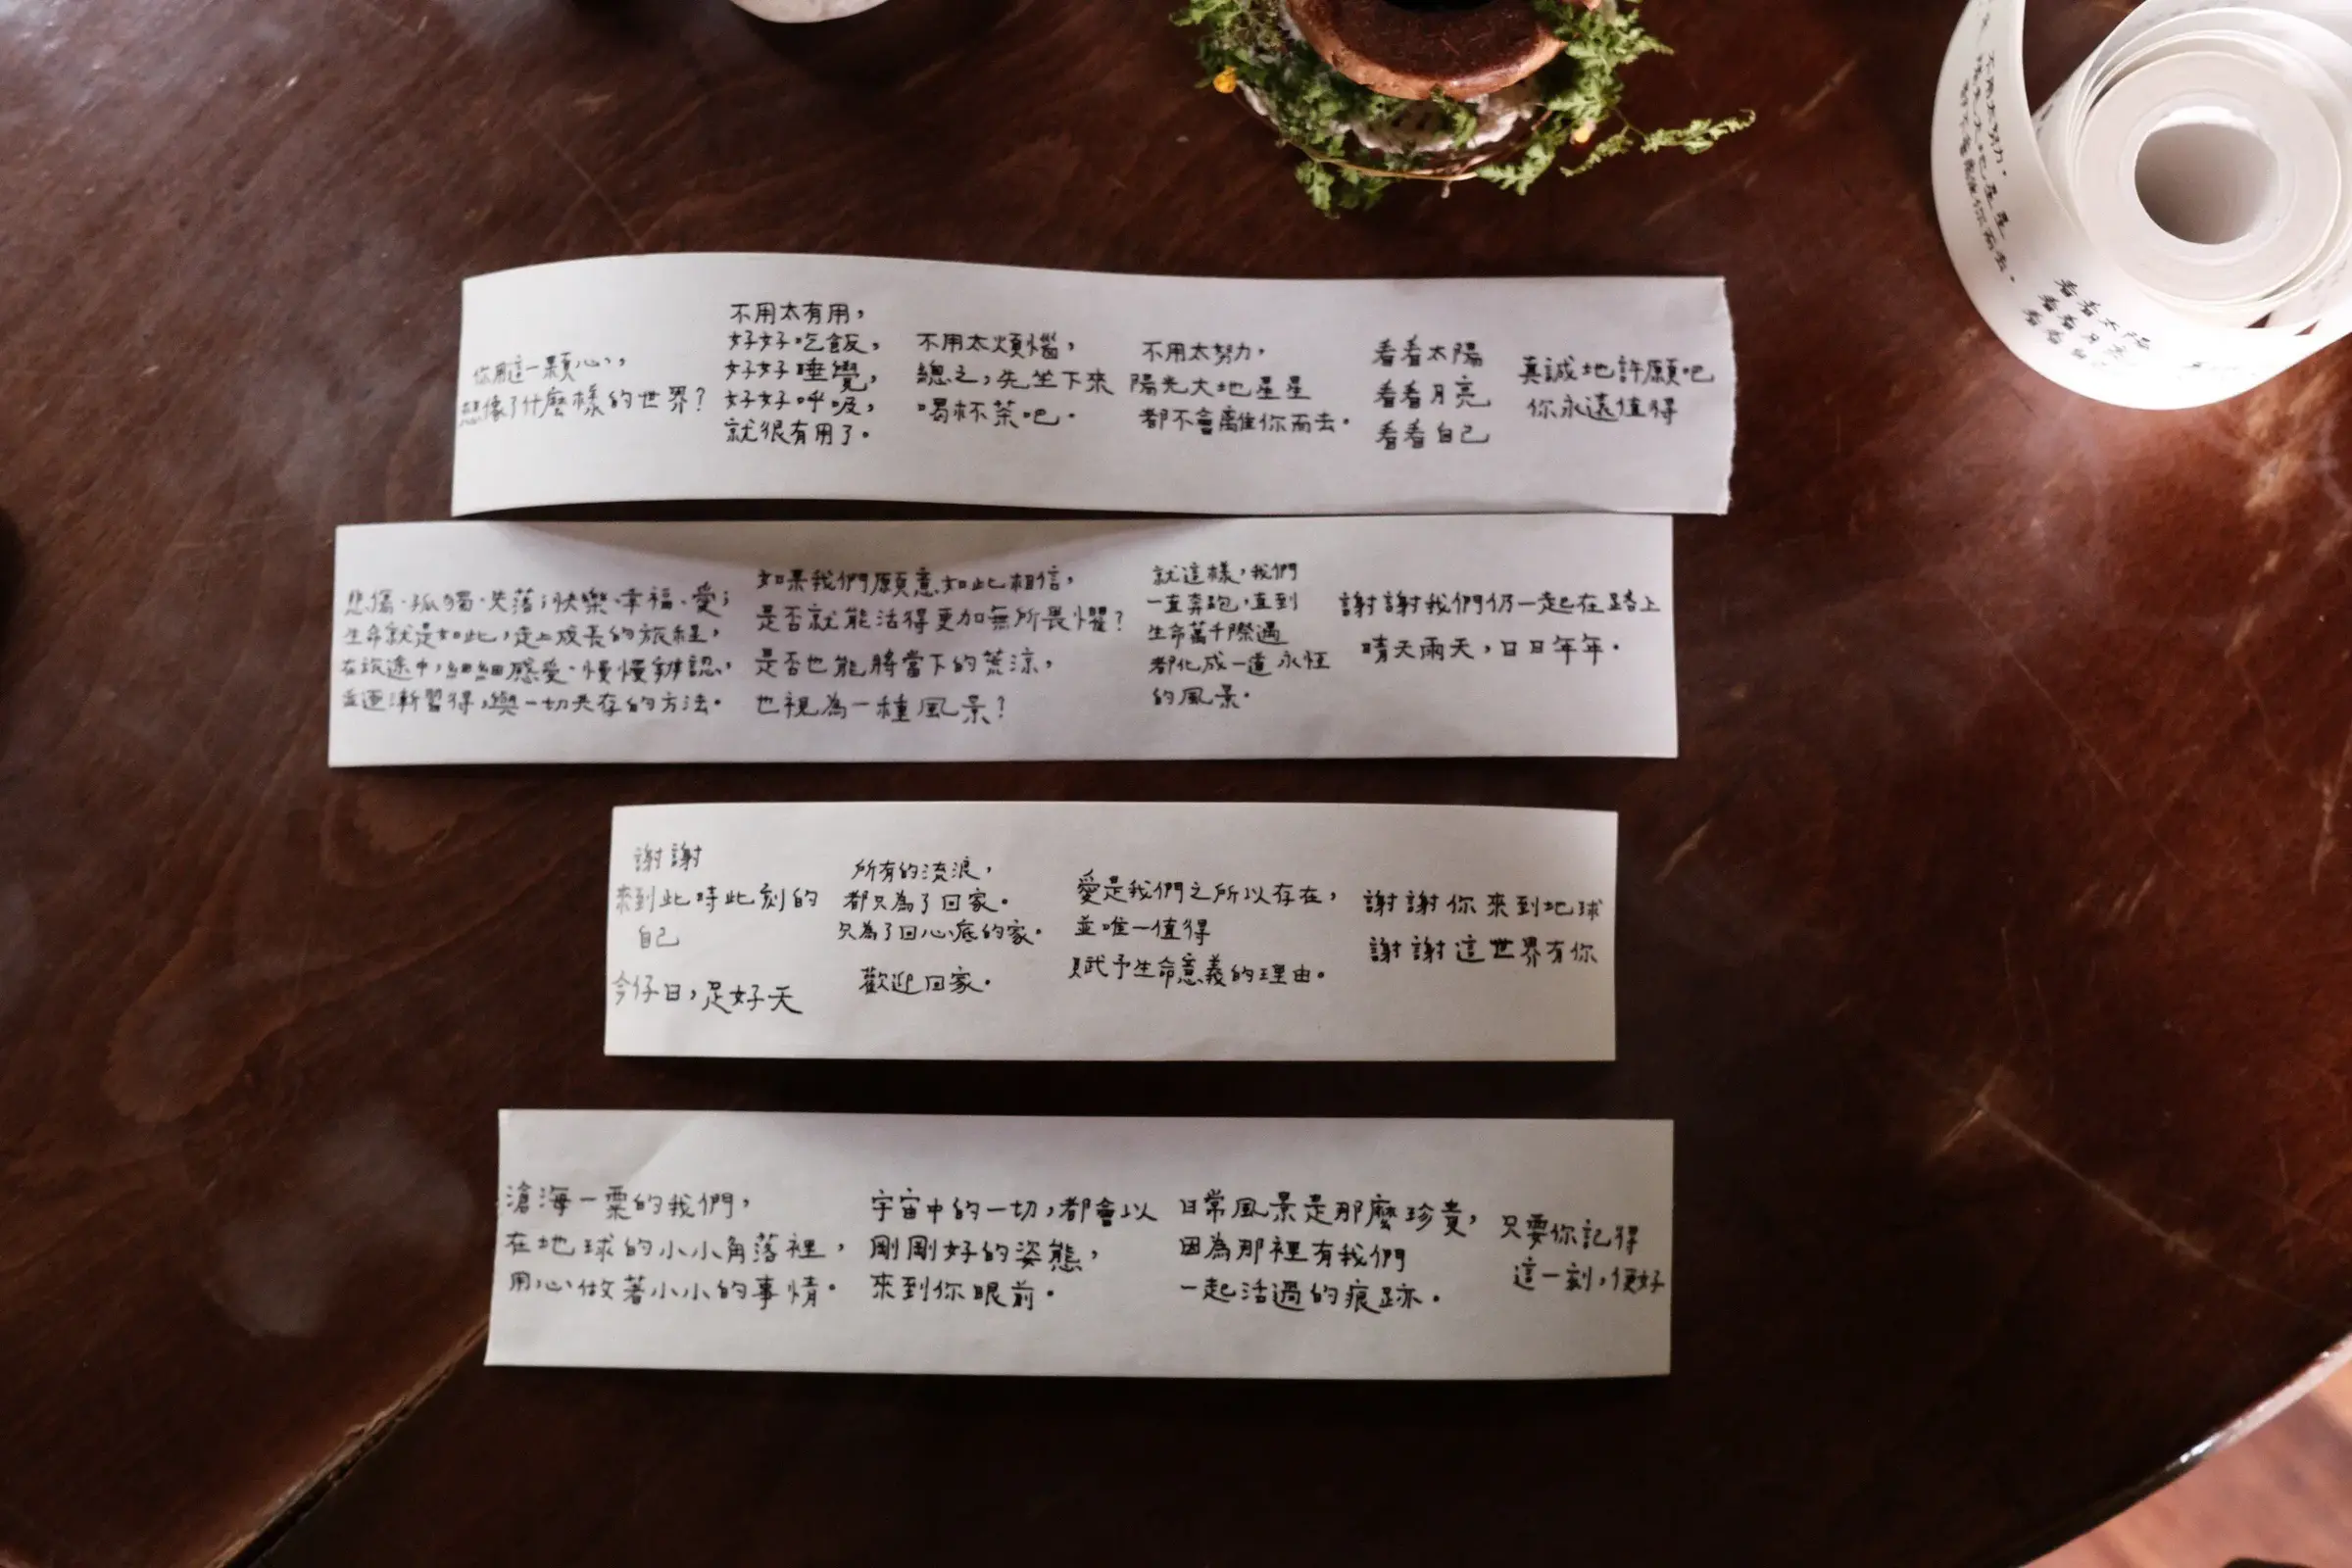 你用這一顆心，
想像了什麼樣的世界？
不用太有用，
好好吃飯，
好好睡覺，
好好呼吸，
就很有用了。
不用太煩惱，
總之，先坐下來
喝杯茶吧。
不用太努力，
陽光大地星星
都不會離你而去。
看看太陽
看看月亮
看看自己
真誠地許願吧
你永遠值得
悲傷、孤獨、失落；快樂、幸福、愛；
生命就是如此，走上成長的旅程，
在旅途中，細細感受、慢慢辨認，
並逐漸習得，與一切共存的方法。
如果我們願意如此相信，
是否就能活得更加無所畏懼？
是否也能將當下的荒涼，
也視為一種風景？
就這樣，我們
一直奔跑，直到
生命萬千際遇
都化成一道永恆
的風景。
謝謝我們仍一起在路上
晴天雨天，日日年年。
謝謝
來到此時此刻的
自己
今仔日，足好天
所有的流浪，
都只為了回家。
只為了回心底的家。
歡迎回家。
愛是我們之所以存在，
並唯一值得
賦予生命意義的理由。
謝謝你來到地球
謝謝這世界有你
滄海一粟的我們，
在地球的小小角落裡，
用心做著小小的事情。
宇宙中的一切，都會以
剛剛好的姿態，
來到你眼前。
日常風景是那麼珍貴，
因為那裡有我們
一起活過的痕跡。
只要你記得
這一刻，便好
不用太努力，
陽光大地星星
都不會離你而去。
看看太陽
看看月亮
看看自己